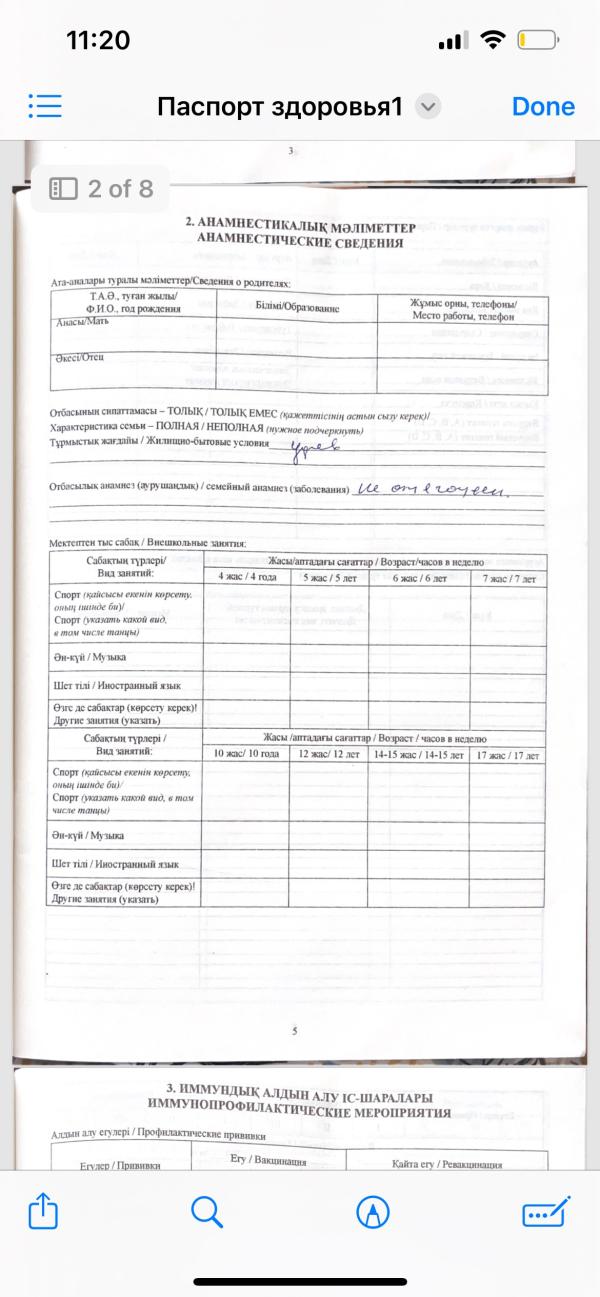 11:20
Паспорт здоровья1
Done
3
2 of 8
2. АНАМНЕСТИКАЛЫҚ МӘЛІМЕТТЕР
АНАМНЕСТИЧЕСКИЕ СВЕДЕНИЯ
Ата-аналары туралы мәліметтер/Сведения о родителях:
Т.А.Ә., туған жылы/
Ф.И.О., год рождения
Білімі/Образование
Жұмыс орны, телефоны/
Место работы, телефон
Анасы/Мать
Әкесі/Отец
Отбасының сипаттамасы – ТОЛЫҚ / ТОЛЫҚ ЕМЕС (қажеттісінің астын сызу керек)/
Характеристика семьи – ПОЛНАЯ / НЕПОЛНАЯ (нужное подчеркнуть)
Тұрмыстық жағдайы / Жилищно-бытовые условия
Отбасылық анамнез (аурушаңдық) / семейный анамнез (заболевания) не отягощен.
Мектептен тыс сабақ / Внешкольные занятия:
Сабақтың түрлері/
Вид занятий:
Жасы/аптадағы сағаттар / Возраст/часов в неделю
4 жас / 4 года
5 жас / 5 лет
6 жас / 6 лет
7 жас / 7 лет
Спорт (қайсысы екенін көрсету,
оның ішінде би)/
Спорт (указать какой вид,
в том числе танцы)
Ән-күй / Музыка
Шет тілі / Иностранный язык
Өзге де сабақтар (көрсету керек)!
Другие занятия (указать)
Сабақтың түрлері /
Вид занятий:
Жасы /аптадағы сағаттар / Возраст / часов в неделю
10 жас/ 10 года
12 жас/ 12 лет
14-15 жас / 14-15 лет
17 жас / 17 лет
Спорт (қайсысы екенін көрсету,
оның ішінде би)/
Спорт (указать какой вид, в том
числе танцы)
Ән-күй / Музыка
Шет тілі / Иностранный язык
Өзге де сабақтар (көрсету керек)!
Другие занятия (указать)
5
3. ИММУНДЫҚ АЛДЫН АЛУ ІС-ШАРАЛАРЫ
ИММУНОПРОФИЛАКТИЧЕСКИЕ МЕРОПРИЯТИЯ
Алдын алу егулері / Профилактические прививки
Егулер / Прививки
Егу / Вакцинация
Қайта егу / Ревакцинация